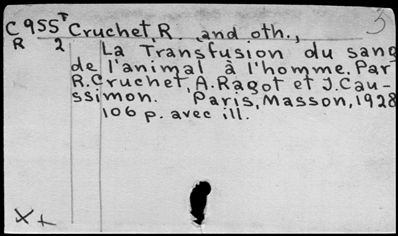 C955T Cruchet, R. and oth., 5
R 2 La Transfusion du sang
de l'animal à l'homme. Par
R.Cruchet, A.Ragot et J.Cau-
ssimon. Paris, Masson, 1928
106 p. avec ill.
X+